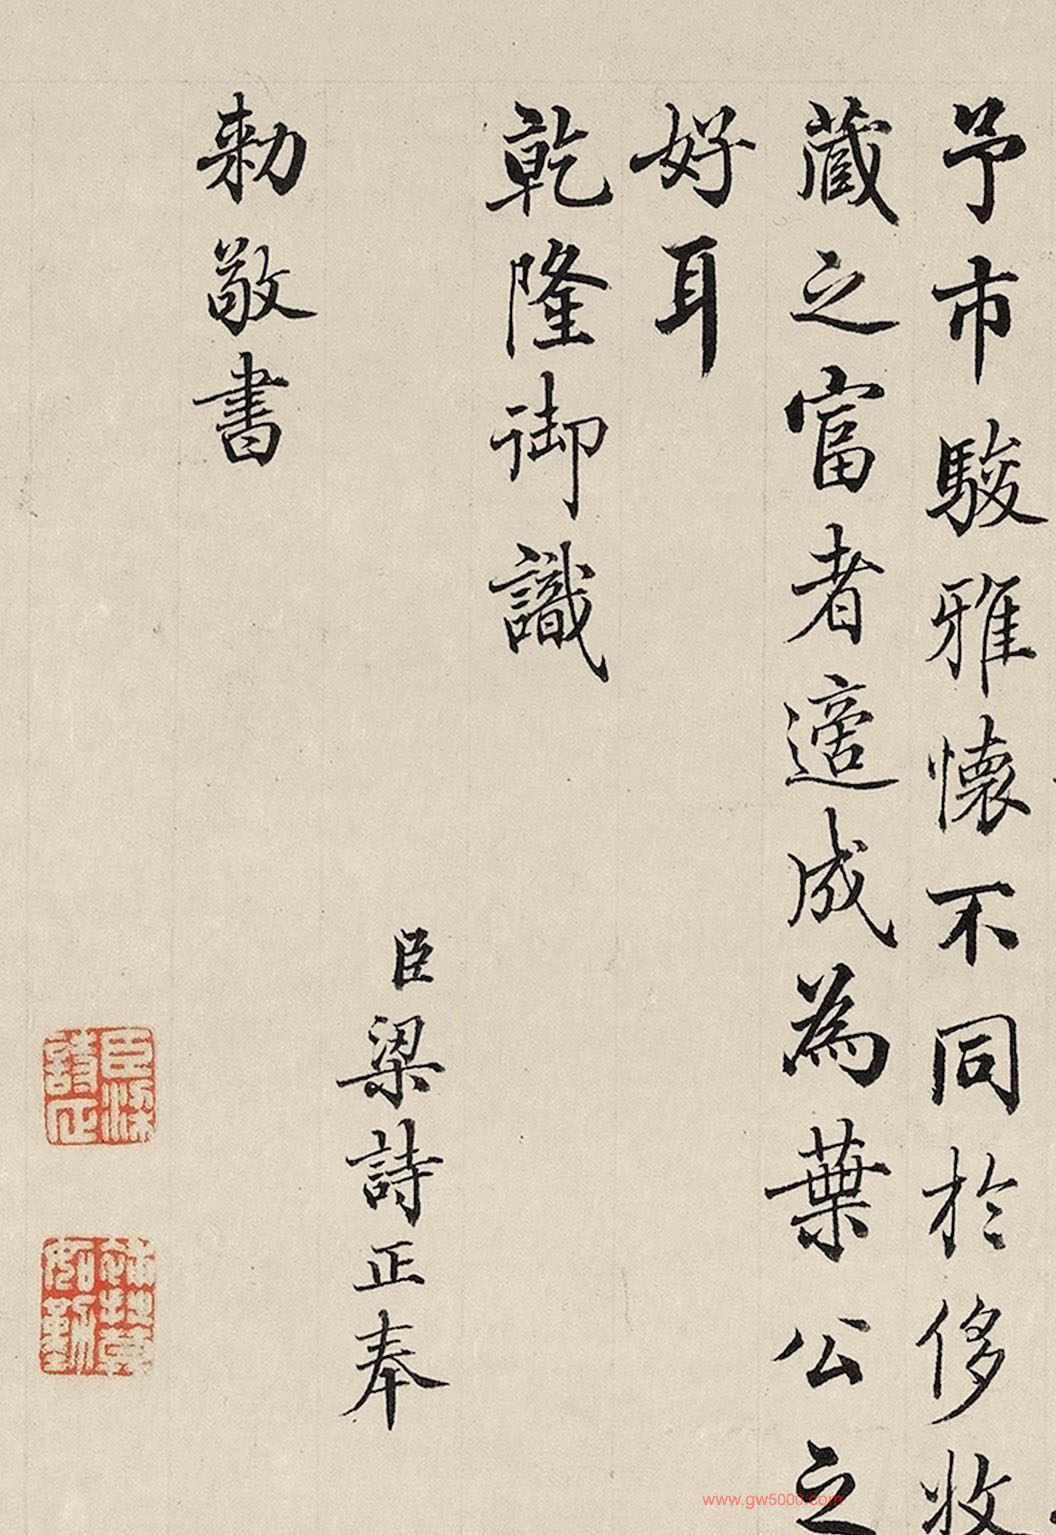 予市駿雅懷不同於侈收
藏之富者適成為葉公之
好耳
乾隆御識
臣梁詩正奉
勅敬書
臣梁詩正
www.gw5000.com